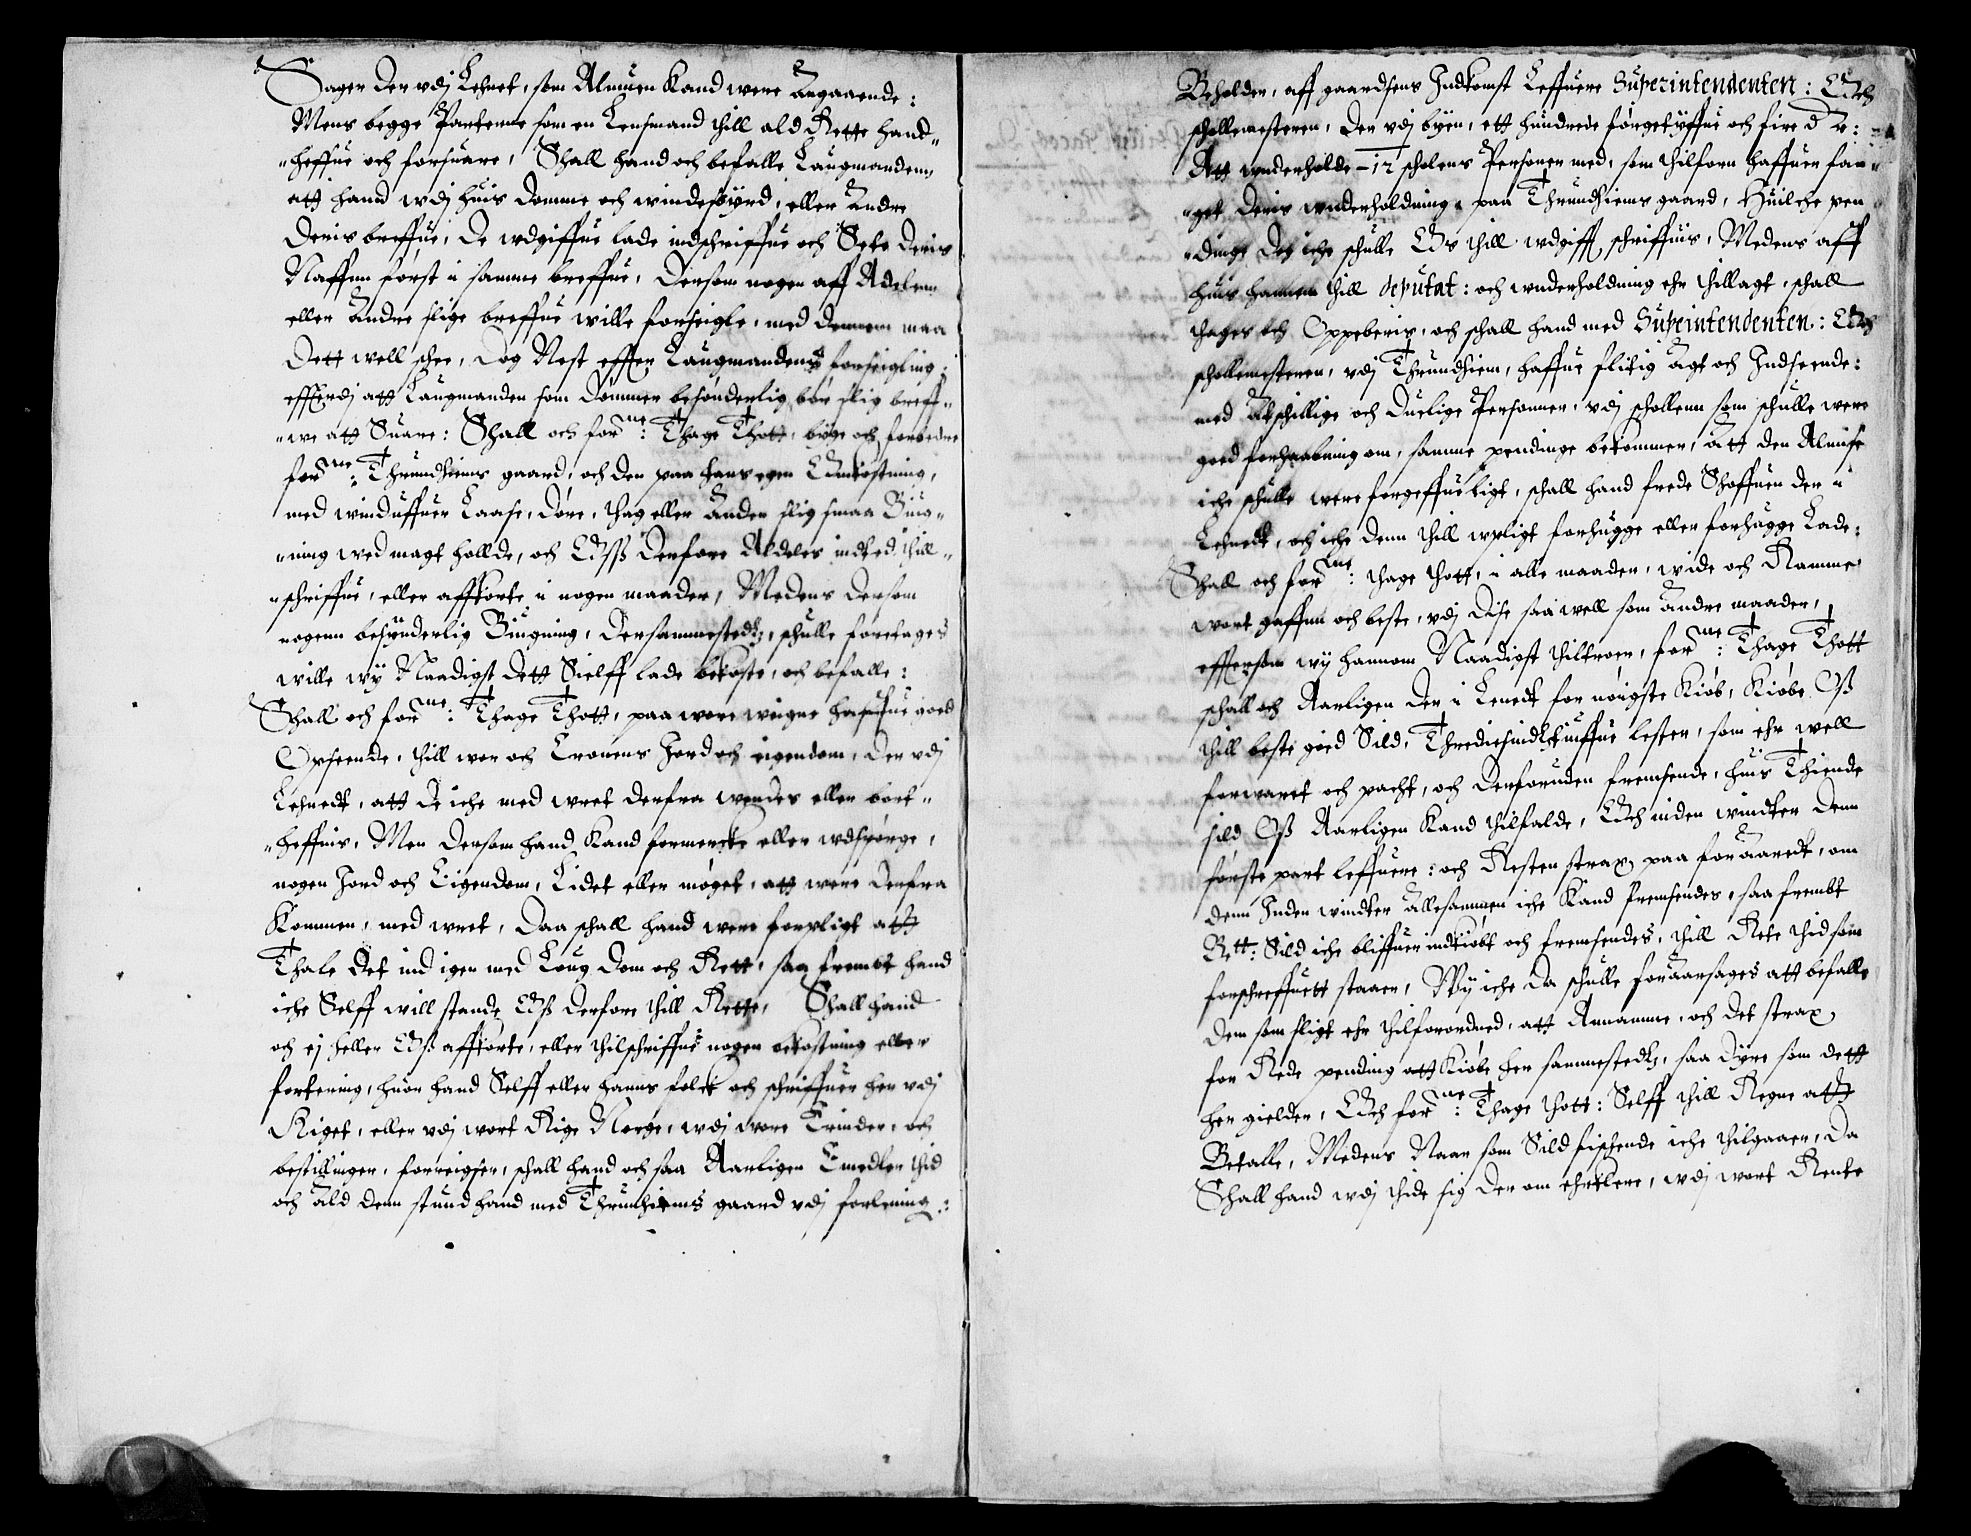 Sager der vdj Lehnet, som Almuen Kand were Angaaende:
Mens begge Parterne som en Lensmand thill ald Rette hand-
-heffue och forsuare, Shall hand och befalle Laugmanden
att hand wdj huis Domme och windesbyrd, eller Andre
Deris breffue, De wdgiffue lade indschriffue och Sete Deris
Naffnn først i samme breffue, Dersom nogen aff Adelenn
eller Andre slige breffue wille forseigle, med dennem maa
Dett well schee, Dog Nest effter Laugmandens forseigling;
effterdj att Laugmanden som Dømmer besønderlig bør slig breff-
-we att Suare: Shall och forne: Thage Thott, byge och forbedre
forne: Thrundhiems gaard, och den paa hans egen Wnkostning,
med winduffuer Laase, Døre, thag eller Anden slig smaa Biug-
-ning wed magt hollde, och Woss Derfore Aldeles indted thill-
-schriffue, eller affkorte i nogen maader, Medens Dersom
nogenn besynderlig Biugning, Dersammestedz, schulle foretages
wille wy Naadigst Dett Sielff lade bekoste, och befalle:
Shall och forne: Thage Thott, paa wore weigne haffue goed
Opseende, thill wor och Cronens Jord och eigendom, Der vdj
Lehnedt, att De iche med wret derfra wendes eller bort-
-heffuis, Men Dersom hand Kand formercke eller wdspørge,
nogen Jord och Eigendom, Lidet eller møget, att were Derfra
Kommen, med wret, Daa schall hand were forpligt att
Thale Det ind igen med Loug Dom och Rett, saa frembt hand
iche Selff will stande Woss derfore thill Rette, Shall hand
och ej heller Woss affkorte, eller thilschriffue nogen bekostning eller
fortering, huor hand Selff eller hanns folck och schriffuer her vdj
Riget, eller vdj wort Rige Norge, wdj wore Erinder, och
bestillinger, forreigser, schall hand och saa Aarligen Emedler thid
och Ald denn stund hand med Thrunhiems gaard vdj forlening:
Beholder, aff gaardsens Indkomst Leffuere Superintendenten: Och
schollemesteren, Der vdj byen, ett hundrede førgetyffue och fire dlr:
Att wnderholde – 12 scholens Personer med, som thilforn haffuer fan-
-get Deris wnderholdning, paa Thrundhiems gaard, Huilche pen
-dinge Dog iche schulle Os thill wdgifft schriffuis, Medens aff
huis hannem thill deputat: och wnderholdning ehr thillagt, schall
thages och Oppeberis, och schall hand med Supeintendenten: Och
schollemesteren, vdj Thrundhiem, haffue flitig Agt och Indseende:
med Atschillige och Duelige Personer, vdj schollenn som schulle were
goed forhaabning om, samme pendinge bekommer, Att den Almise
iche schulle were forgeffueligt, schall hand frede Shoffuen der i
Lehnedt, och iche Denn thill wpligt forhugge eller forhugge Lade:
Shall och forne: thage thott, i alle maader, wide och Ramme
wort gaffnn och beste, vdj Dise saa well som Andre maader,
effersom wy hannom Naadigst thiltroer, forne: Thage Thott
schall och Aarligen Der i Lenedt for nøigste Kiøb, Kiøbe Oss
thill beste goed Sild, Thrediesindtztuiffue Lester, som ehr well
forwaret och pacht, och Derforuden fremsende, huis Thiende
sild Oss Aarligen Kand thilfalde, Och inden windter Denn
første part leffuere: och Resten strax paa forAaredt, om
denn Inden windter Allesammen iche Kand fremsendes, saa frembt
Bett: Sild iche bliffuer indkiøbt och fremsendes, thill Rete thid som
forschreffuett staaer, Wy iche Da schulle forAarsages att befalle
Dem som sligt ehr thilforordned, att Annamme, och Det strax,
for Rede pending att Kiøbe her sammestedz, saa Dyre som dett
her gielder, Och forne: Thage thott: Selff thill Regne att
Betalle, Medens Naar som Sild fischende iche thilgaaer, Da
Shall hand wdj thide sig Der om ehrklere, wdj wort Rente